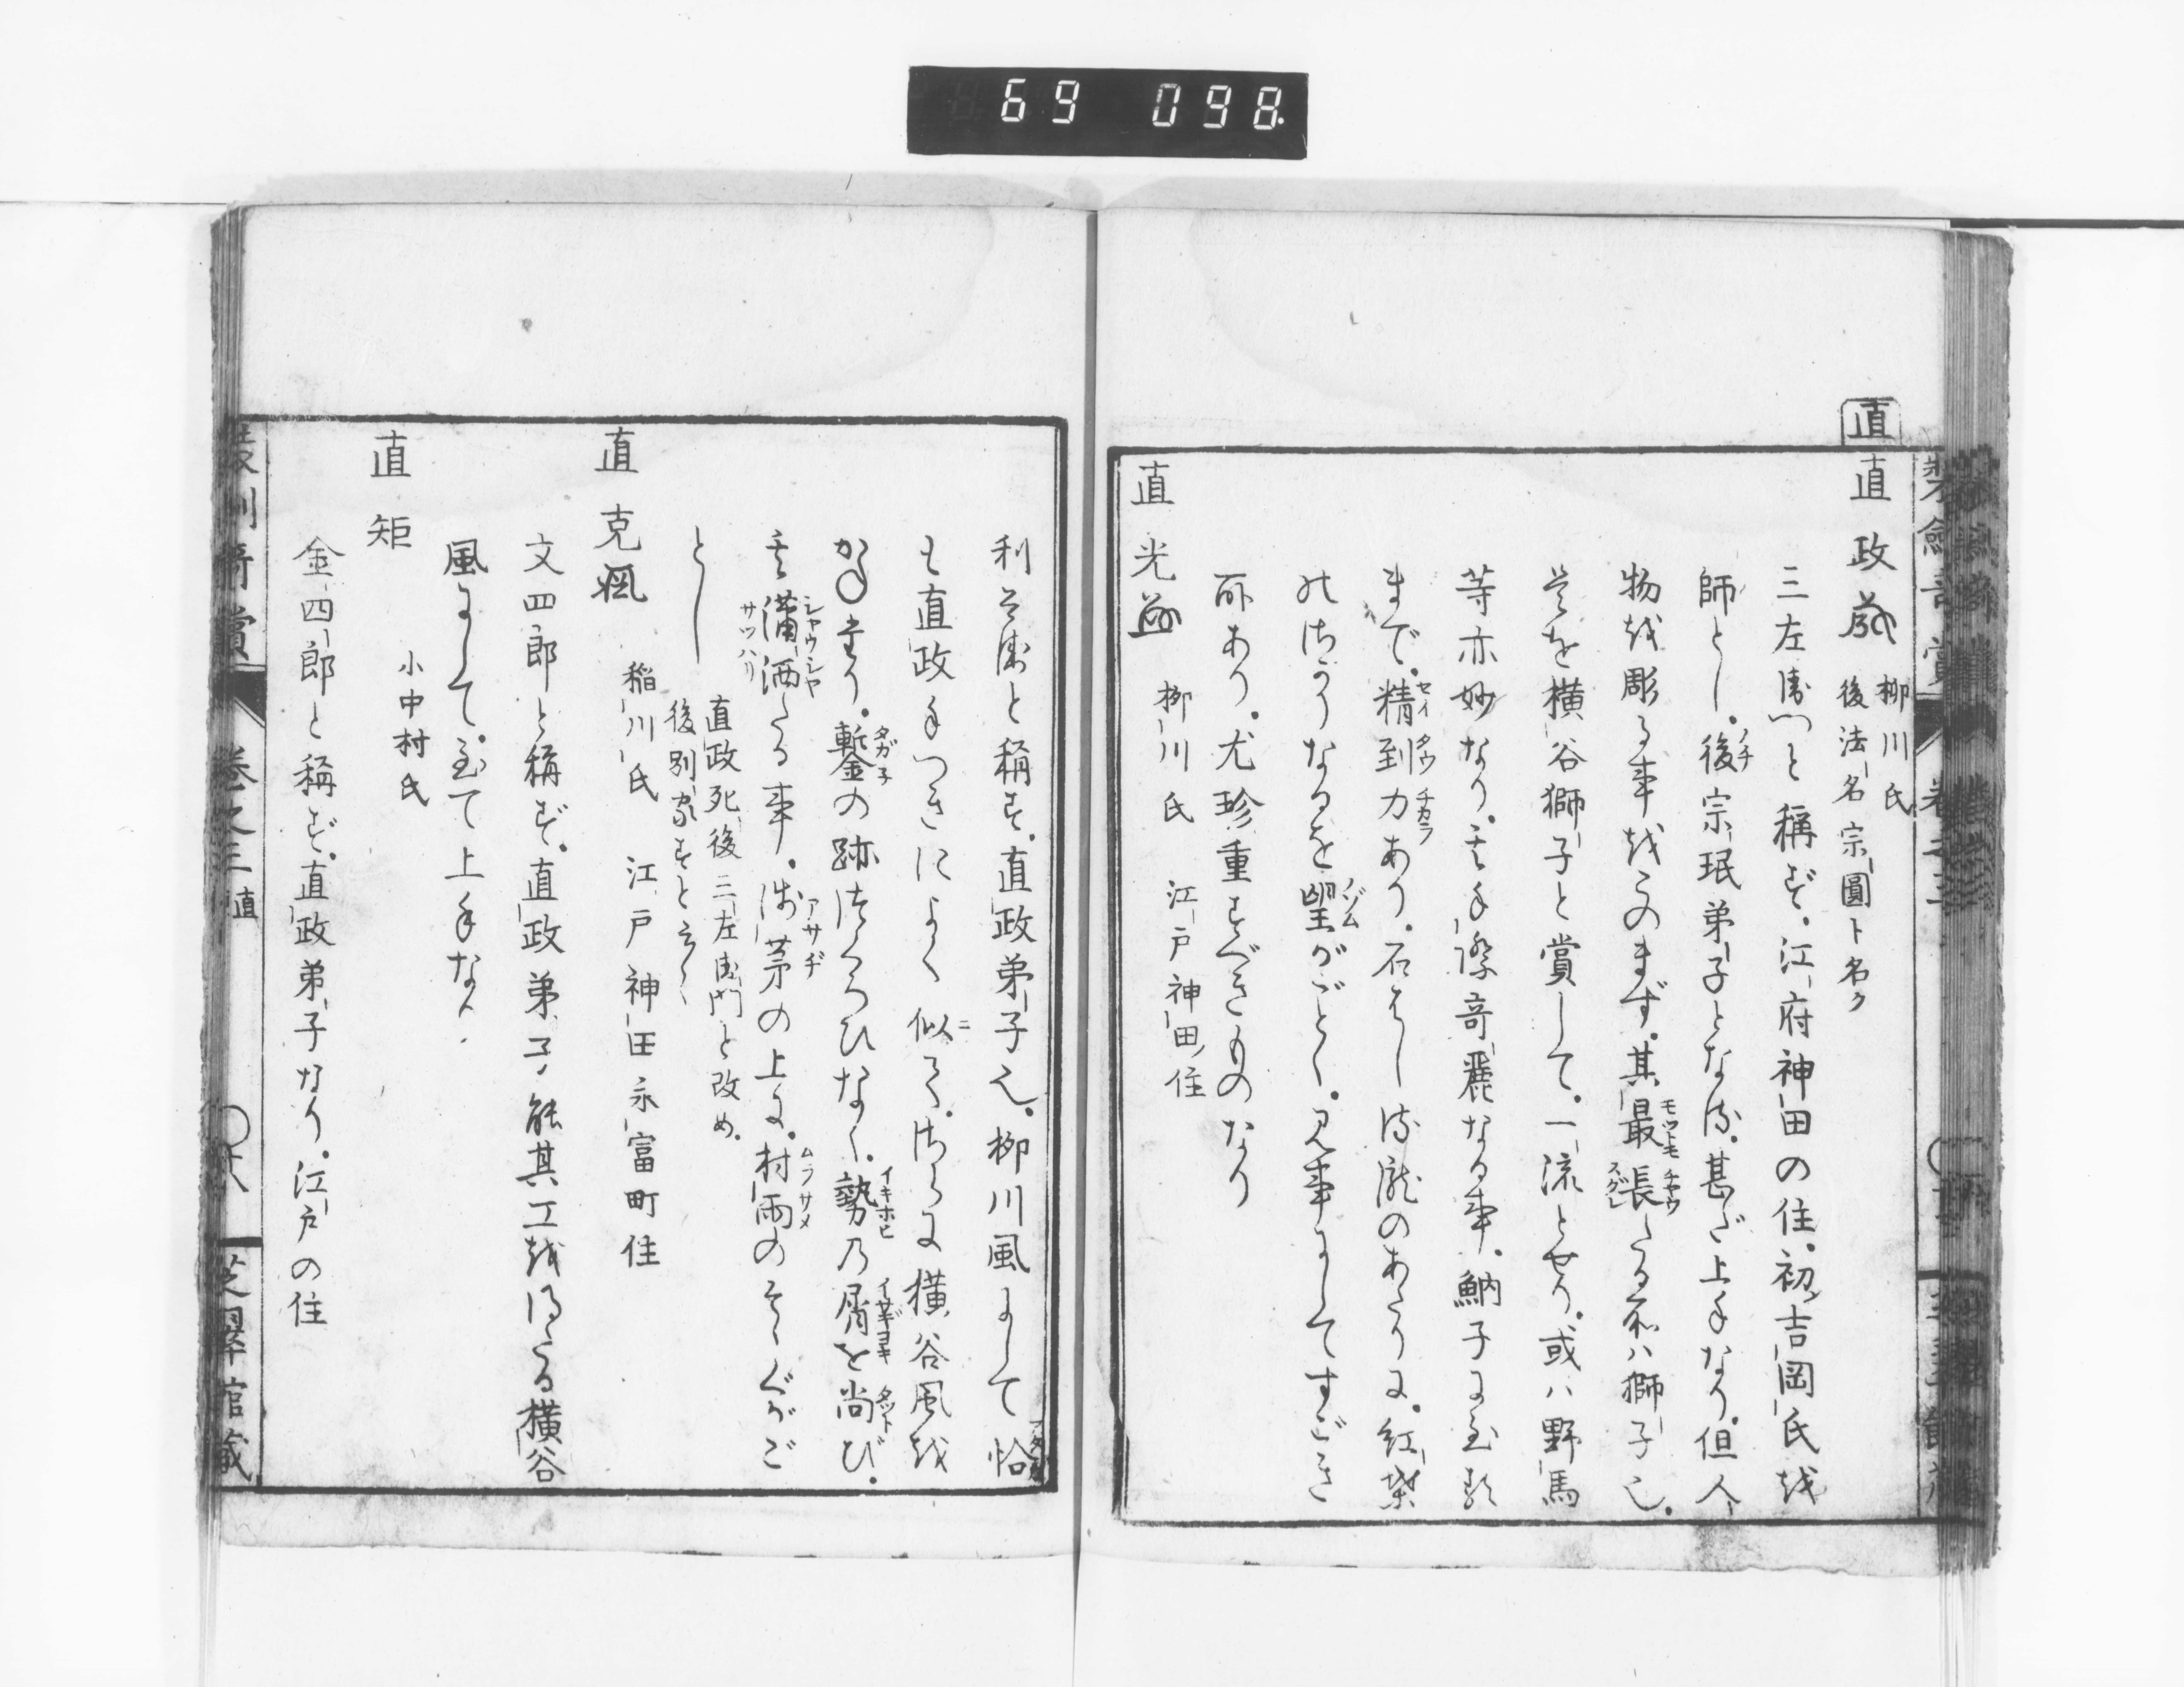 69 098.
直
直政 柳川氏
後法名宗圓ト名ク
三左衛門と稱ず。江府神田の住。初吉岡氏越
師とし。後宗珉弟子となる。甚だ上手なり。但人
物越彫る事越このまず。其最長たる所ハ獅子也。
是を横谷獅子と賞して。一流とせり。或ハ野馬
等亦妙なり。其手際奇麗なる事。魶子に至る
まで。精到力あり。石ばしる瀧のあたりに。紅葉
のちりなるを望がごとし。見事にしてすごき
所あり。尤珍重すべきものなり
直光 柳川氏 江戸神田住
利兵衛と稱す。直政弟子也。柳川風にして恰
も直政手つきによく似て。さらに横谷風越
かねたり。鏨の跡つくろひなく。勢乃屑を尚び。
其瀟洒たる事。浅茅の上に。村雨のそゝぐがご
とし 直政死後三左衛門と改め。
後別家すと云〻
直克 稲川氏 江戸神田永富町住
文四郎と稱ず。直政弟子。能其工越得たる横谷
風にして。至て上手なり
直矩 小中村氏
金四郎と稱ず。直政弟子なり。江戸の住
卷之三 直
芝翠館藏